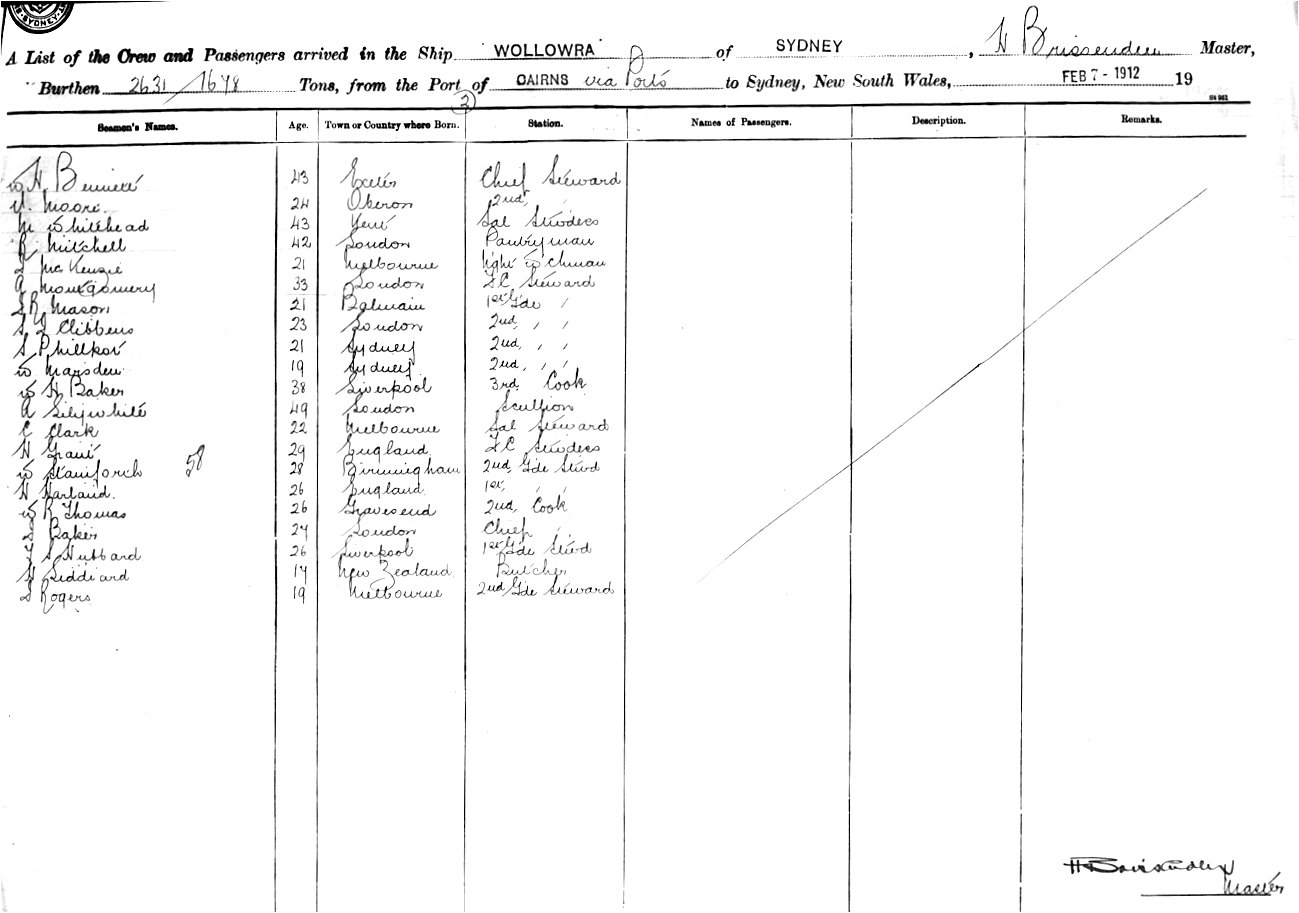 SYDNEY
A List of the Crew and Passengers arrived in the Ship "WOLLOWRA" of SYDNEY, H Brissenden Master,
Burthen 2631/1678 Tons, from the Port of CAIRNS via Ports to Sydney, New South Wales, FEB 7 - 1912 19
(2)
St 961
Seamen's Names. Age. Town or Country where Born. Station. Names of Passengers. Description. Remarks.
W H Bennett 43 Exeter Chief Steward
Moore 24 Oberon 2nd "
M Whitehead 43 Kent Sal Stwdess
R Mitchell 42 London Pantryman
McKenzie 21 Melbourne Night Wchman
A Montgomery 33 London F.C Steward
R Mason 21 Balmain 1st Gde "
S Clibbens 23 London 2nd, " "
S Phillpot 21 Sydney 2nd, " "
W Marsden 19 Sydney 2nd, " "
W H Baker 38 Liverpool 3rd Cook
A Silijwhite 49 London Scullion
C Clark 22 Melbourne Sal Steward
H Grant 29 England F C Stwdess
W Staniforth 58 28 Birmingham 2nd, Gde Stwd
H Harland. 26 England. 1st, " "
W R Thomas 26 Gravesend 2nd, Cook
Baker 24 London Chief "
F S Hubbard 26 Liverpool 1st Gde Stwd
H Siddiard New Zealand. Butcher
Rogers 19 Melbourne 2nd, Gde Steward
H Brissenden
Master